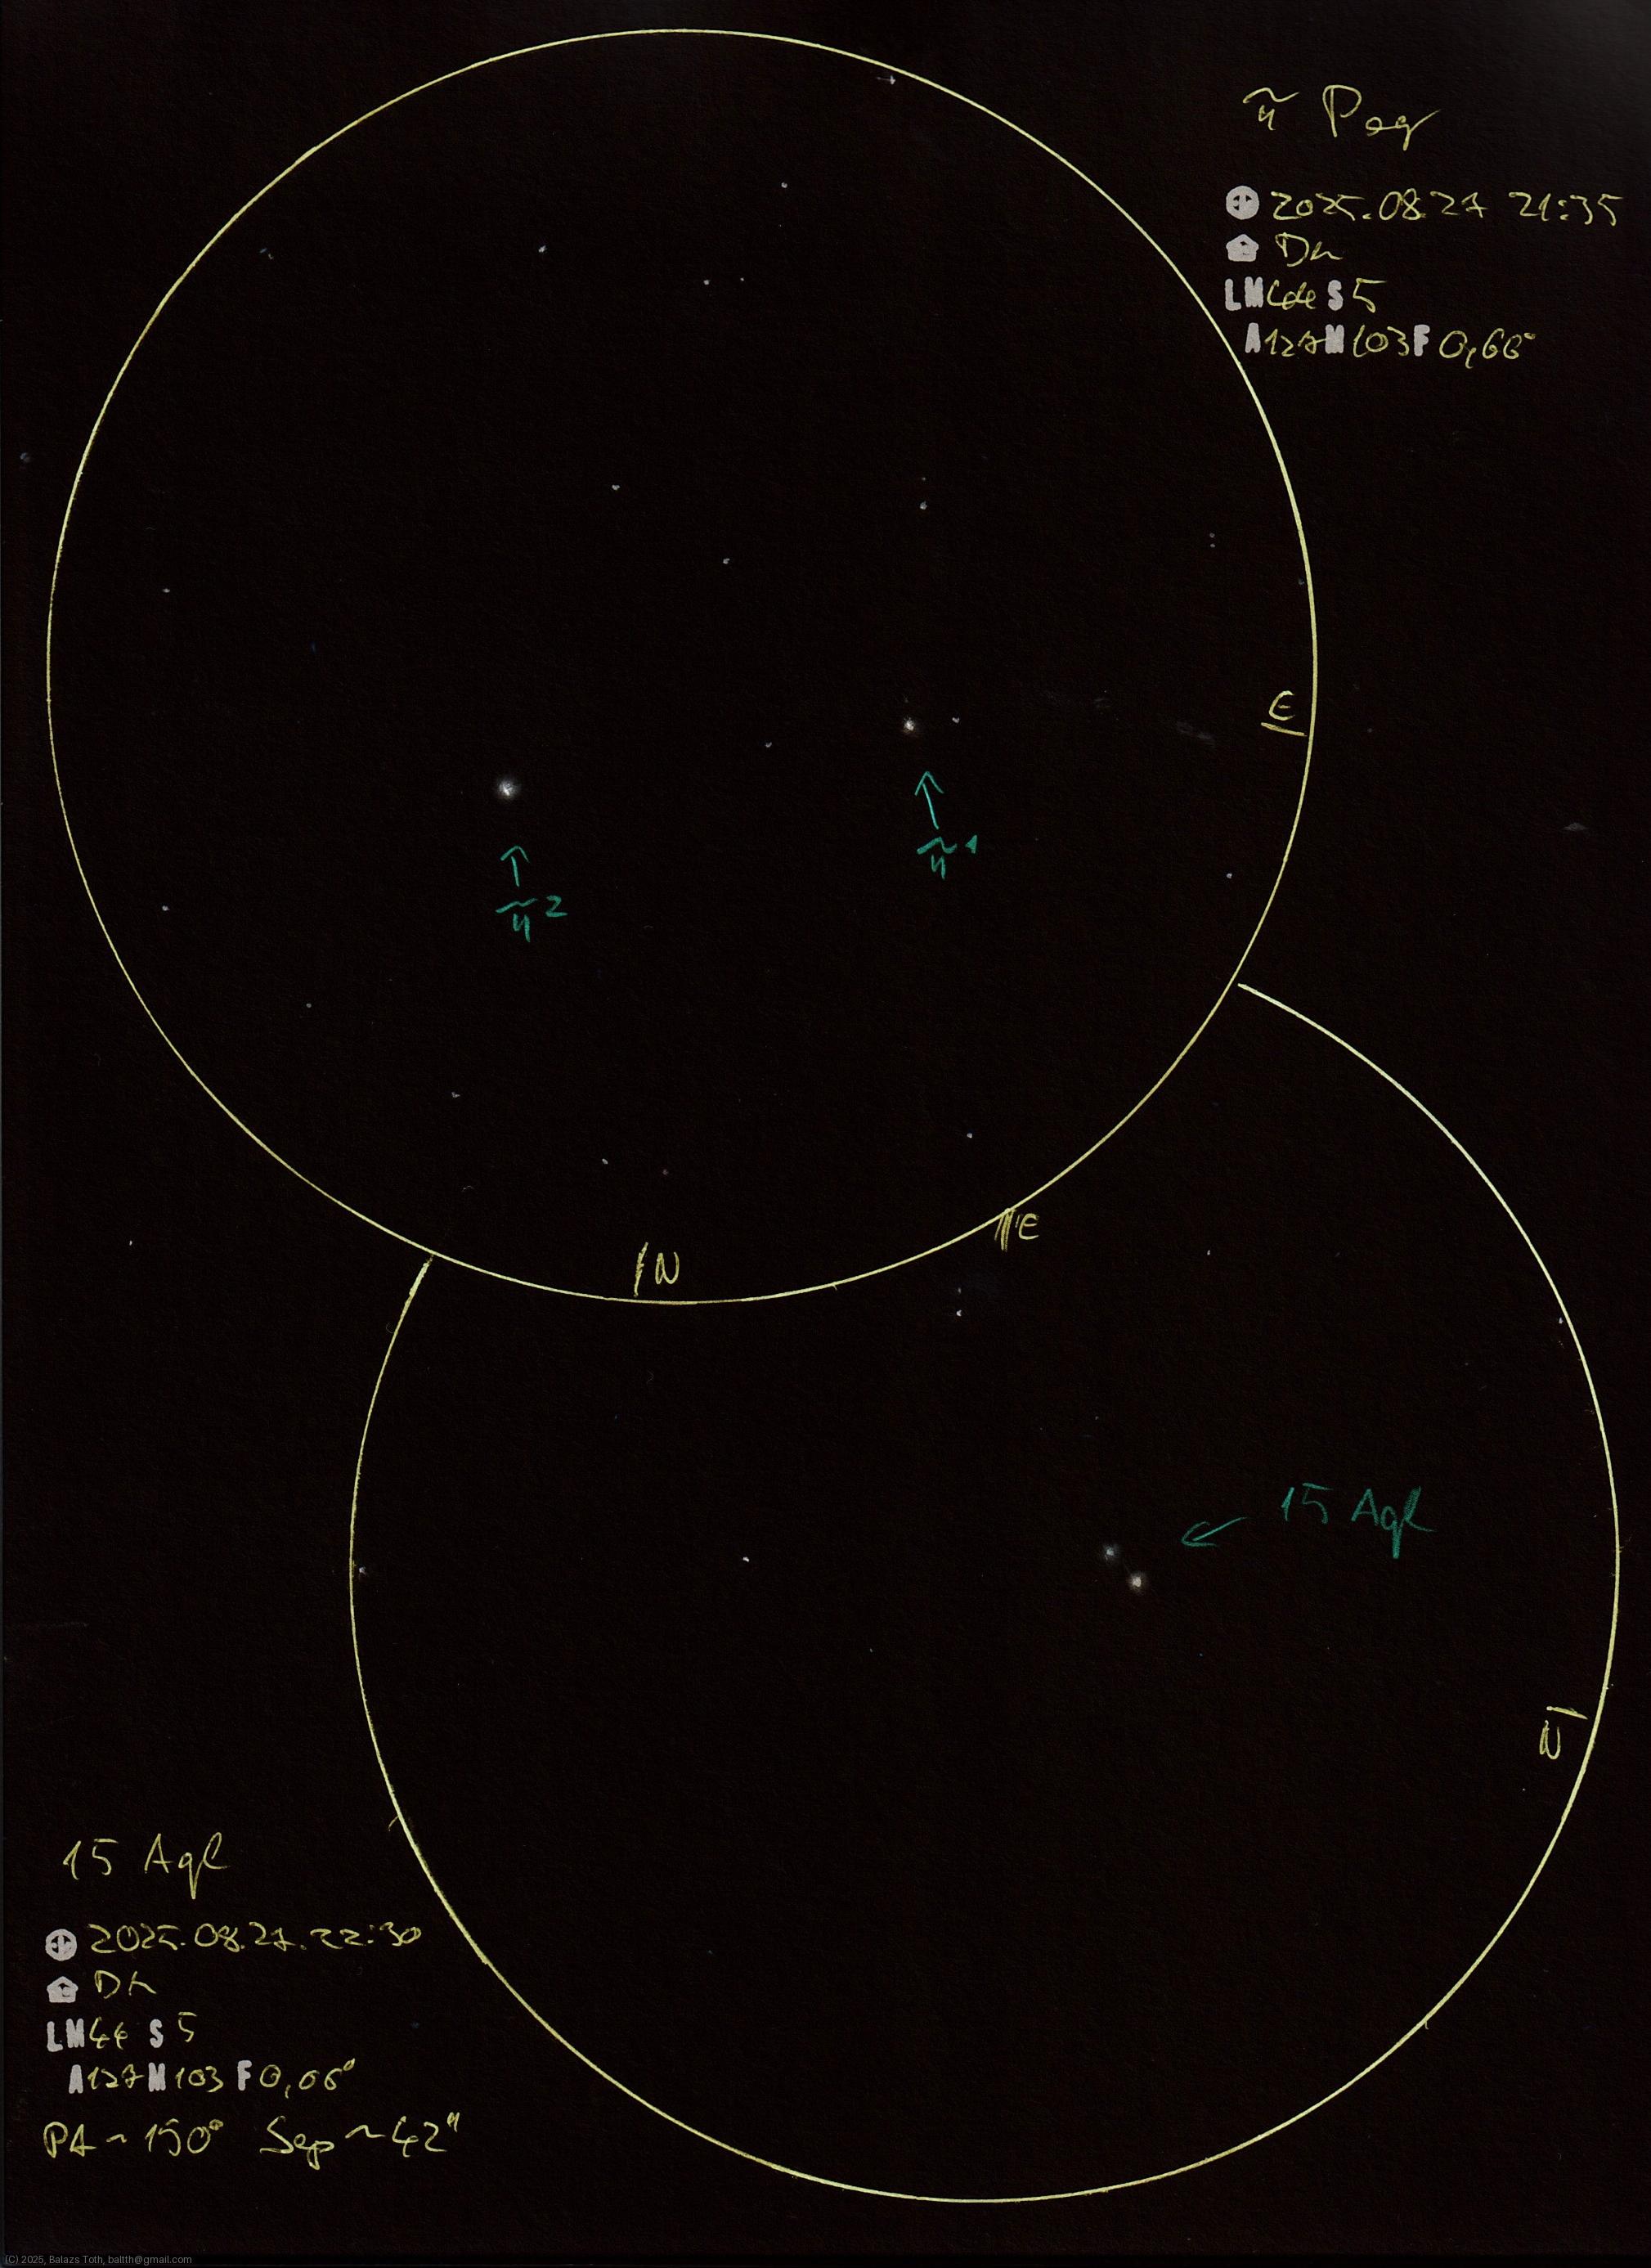 π Peg
2025.08.27 21:35
Dh
LM S 5
A127M103F 0,66°
E
π1
π2
E
N
15 Agl
N
15 Agl
2025.08.27. 22:30
Dh
LM44 S 5
A127M103F 0,66°
PA ~ 150° Sep ~ 42"
(C) 2025, Balazs Toth, baltth@gmail.com